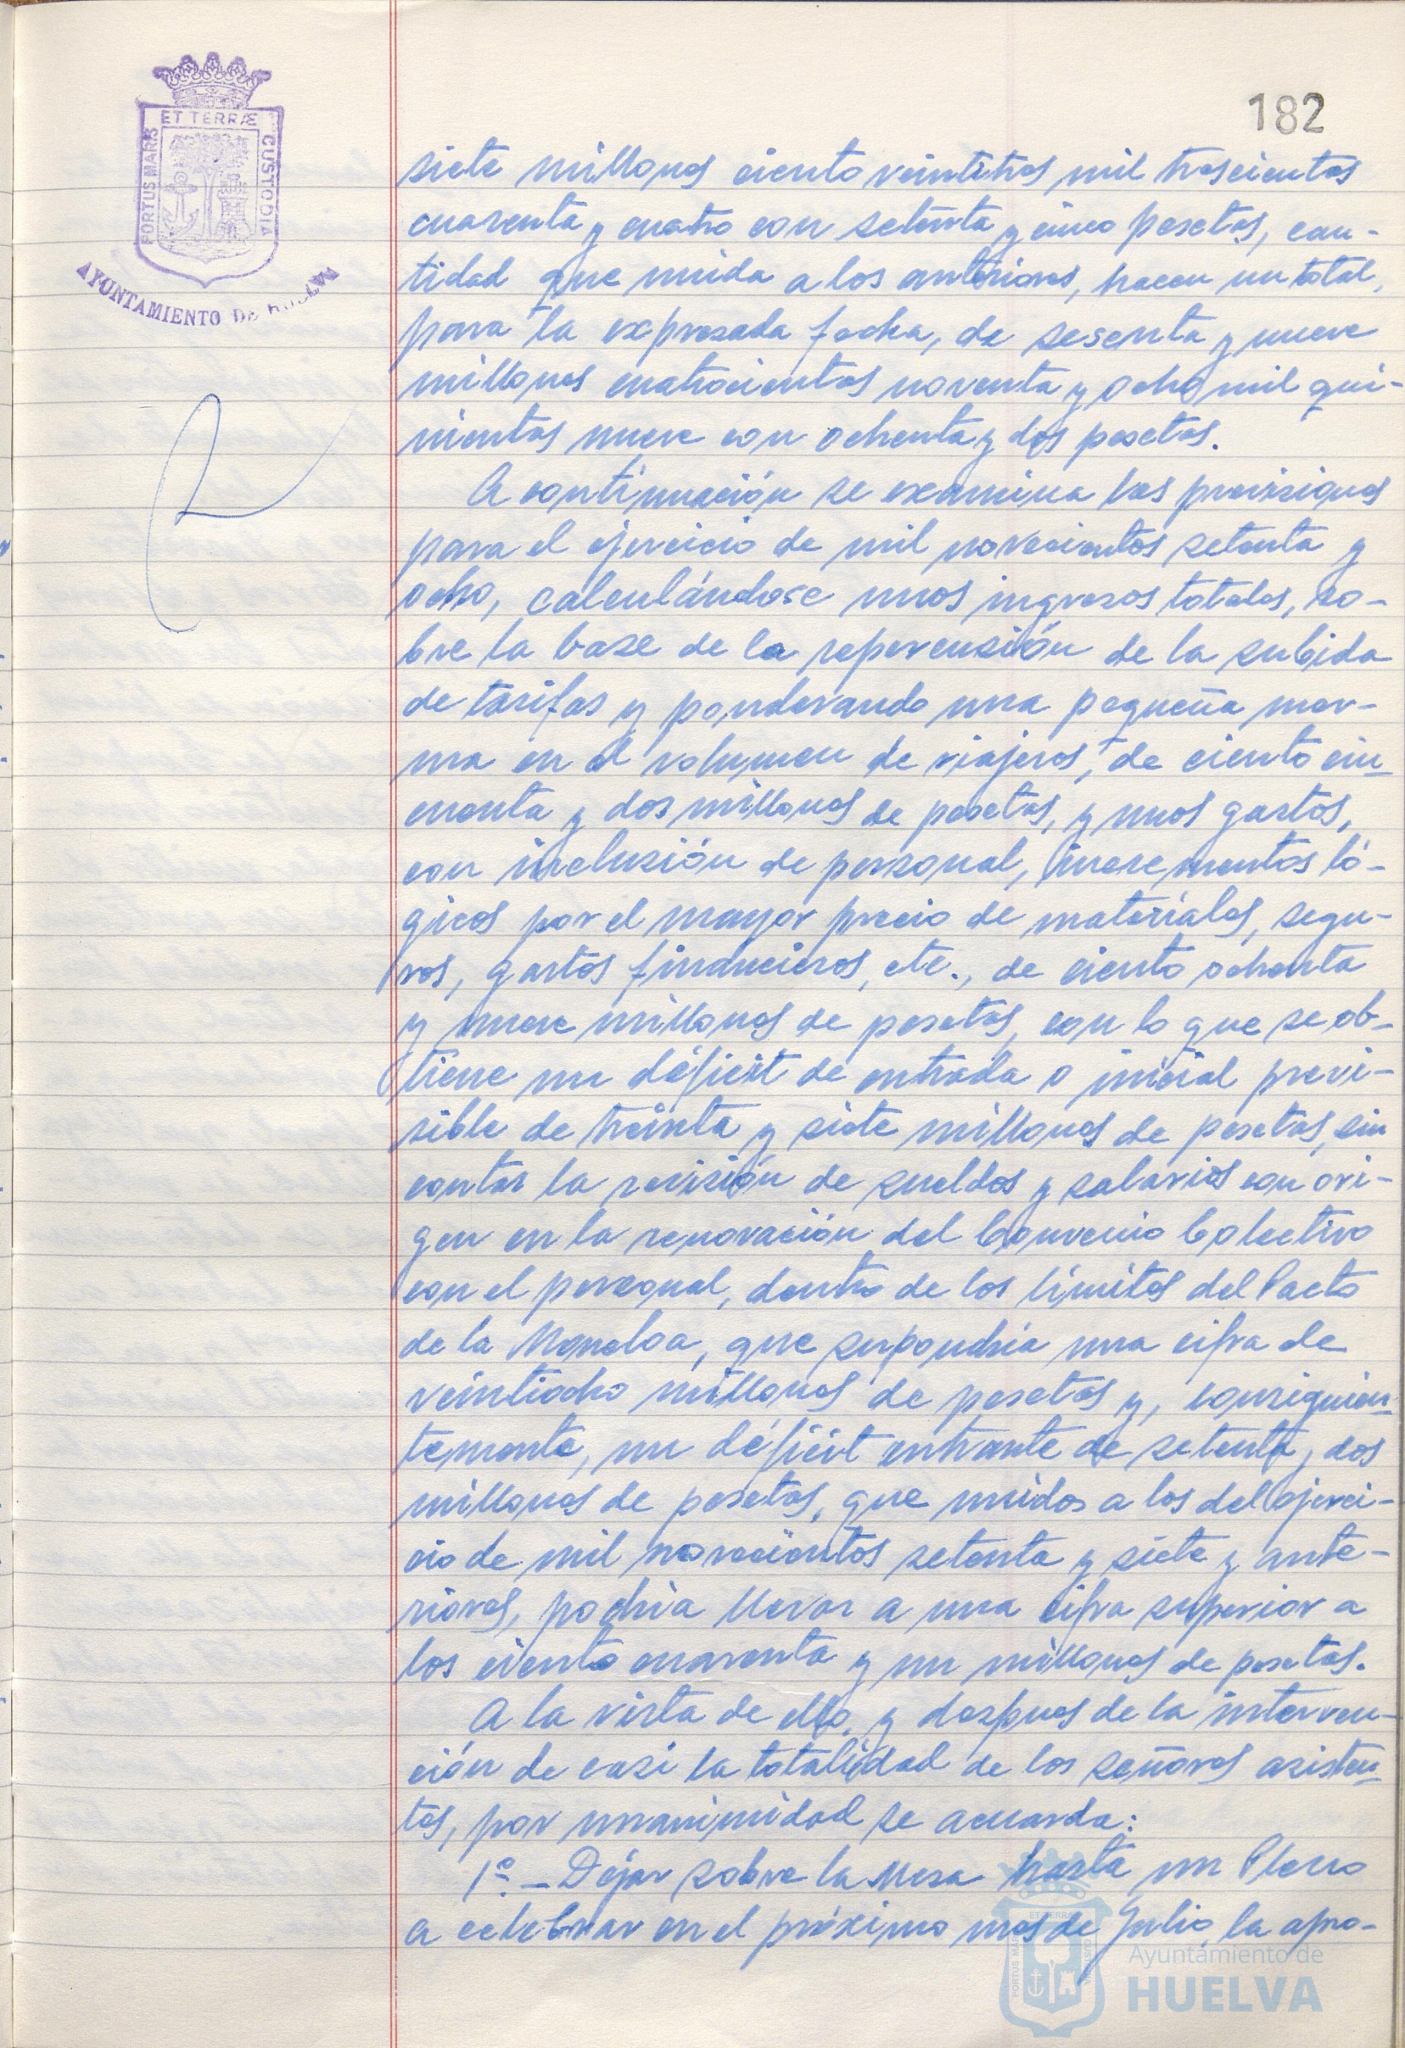 182
PORTUS MARIS ET TERRÆ CUSTODIA
AYUNTAMIENTO DE HUELVA
siete millones ciento veintitres mil trescientas
cuarenta y cuatro con setenta y cinco pesetas, can-
tidad que unida a los anteriores, hacen un total,
para la expresada fecha, de sesenta y nueve
millones cuatrocientas noventa y ocho mil qui-
nientas nueve con ochenta y dos pesetas.
A continuación se examina las previsiones
para el ejercicio de mil novecientos setenta y
ocho, calculándose unos ingresos totales, so-
bre la base de la repercusión de la subida
de tarifas y ponderando una pequeña mer-
ma en el volumen de viajeros, de ciento cin-
cuenta y dos millones de pesetas, y unos gastos,
con inclusión de personal, incrementos ló-
gicos por el mayor precio de materiales, segu-
ros, gastos financieros, etc., de ciento ochenta
y nueve millones de pesetas, con lo que se ob-
tiene un déficit de entrada o inicial previ-
sible de treinta y siete millones de pesetas, sin
contar la revisión de sueldos y salarios con ori-
gen en la renovación del Convenio Colectivo
con el personal, dentro de los límites del Pacto
de la Moncloa, que supondría una cifra de
veintiocho millones de pesetas y, consiguien-
temente, un déficit entrante de setenta y dos
millones de pesetas, que unidos a los del ejerci-
cio de mil novecientos setenta y siete y ante-
riores, podría llevar a una cifra superior a
los ciento cuarenta y un millones de pesetas.
A la vista de ello, y despues de la interven-
ción de casi la totalidad de los señores asisten-
tes, por unanimidad se acuerda:
1º.- Dejar sobre la Mesa hasta un Pleno
a celebrar en el próximo mes de Julio, la apro-
Ayuntamiento de
HUELVA